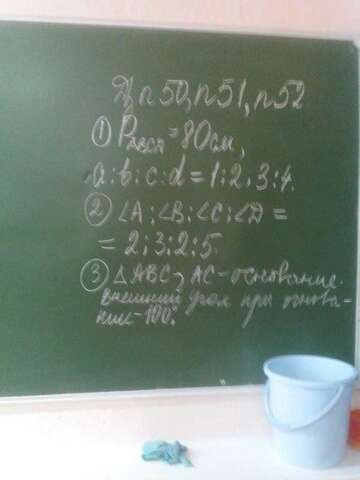 Д, п 50, п 51, п 52
① P ABCD = 80 см,
a : b : c : d = 1 : 2 ; 3 : 4.
② <A : <B : <C : <D =
= 2 ; 3 : 2 : 5.
③ △ ABC, AC - основание.
внешний угол при основа-
нии - 100°.